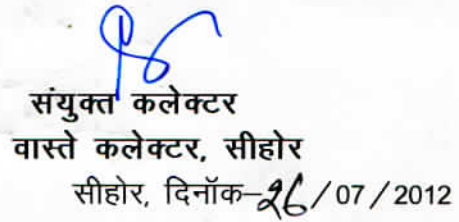 संयुक्त कलेक्टर
वास्ते कलेक्टर, सीहोर
सीहोर, दिनॉक–26/07/2012